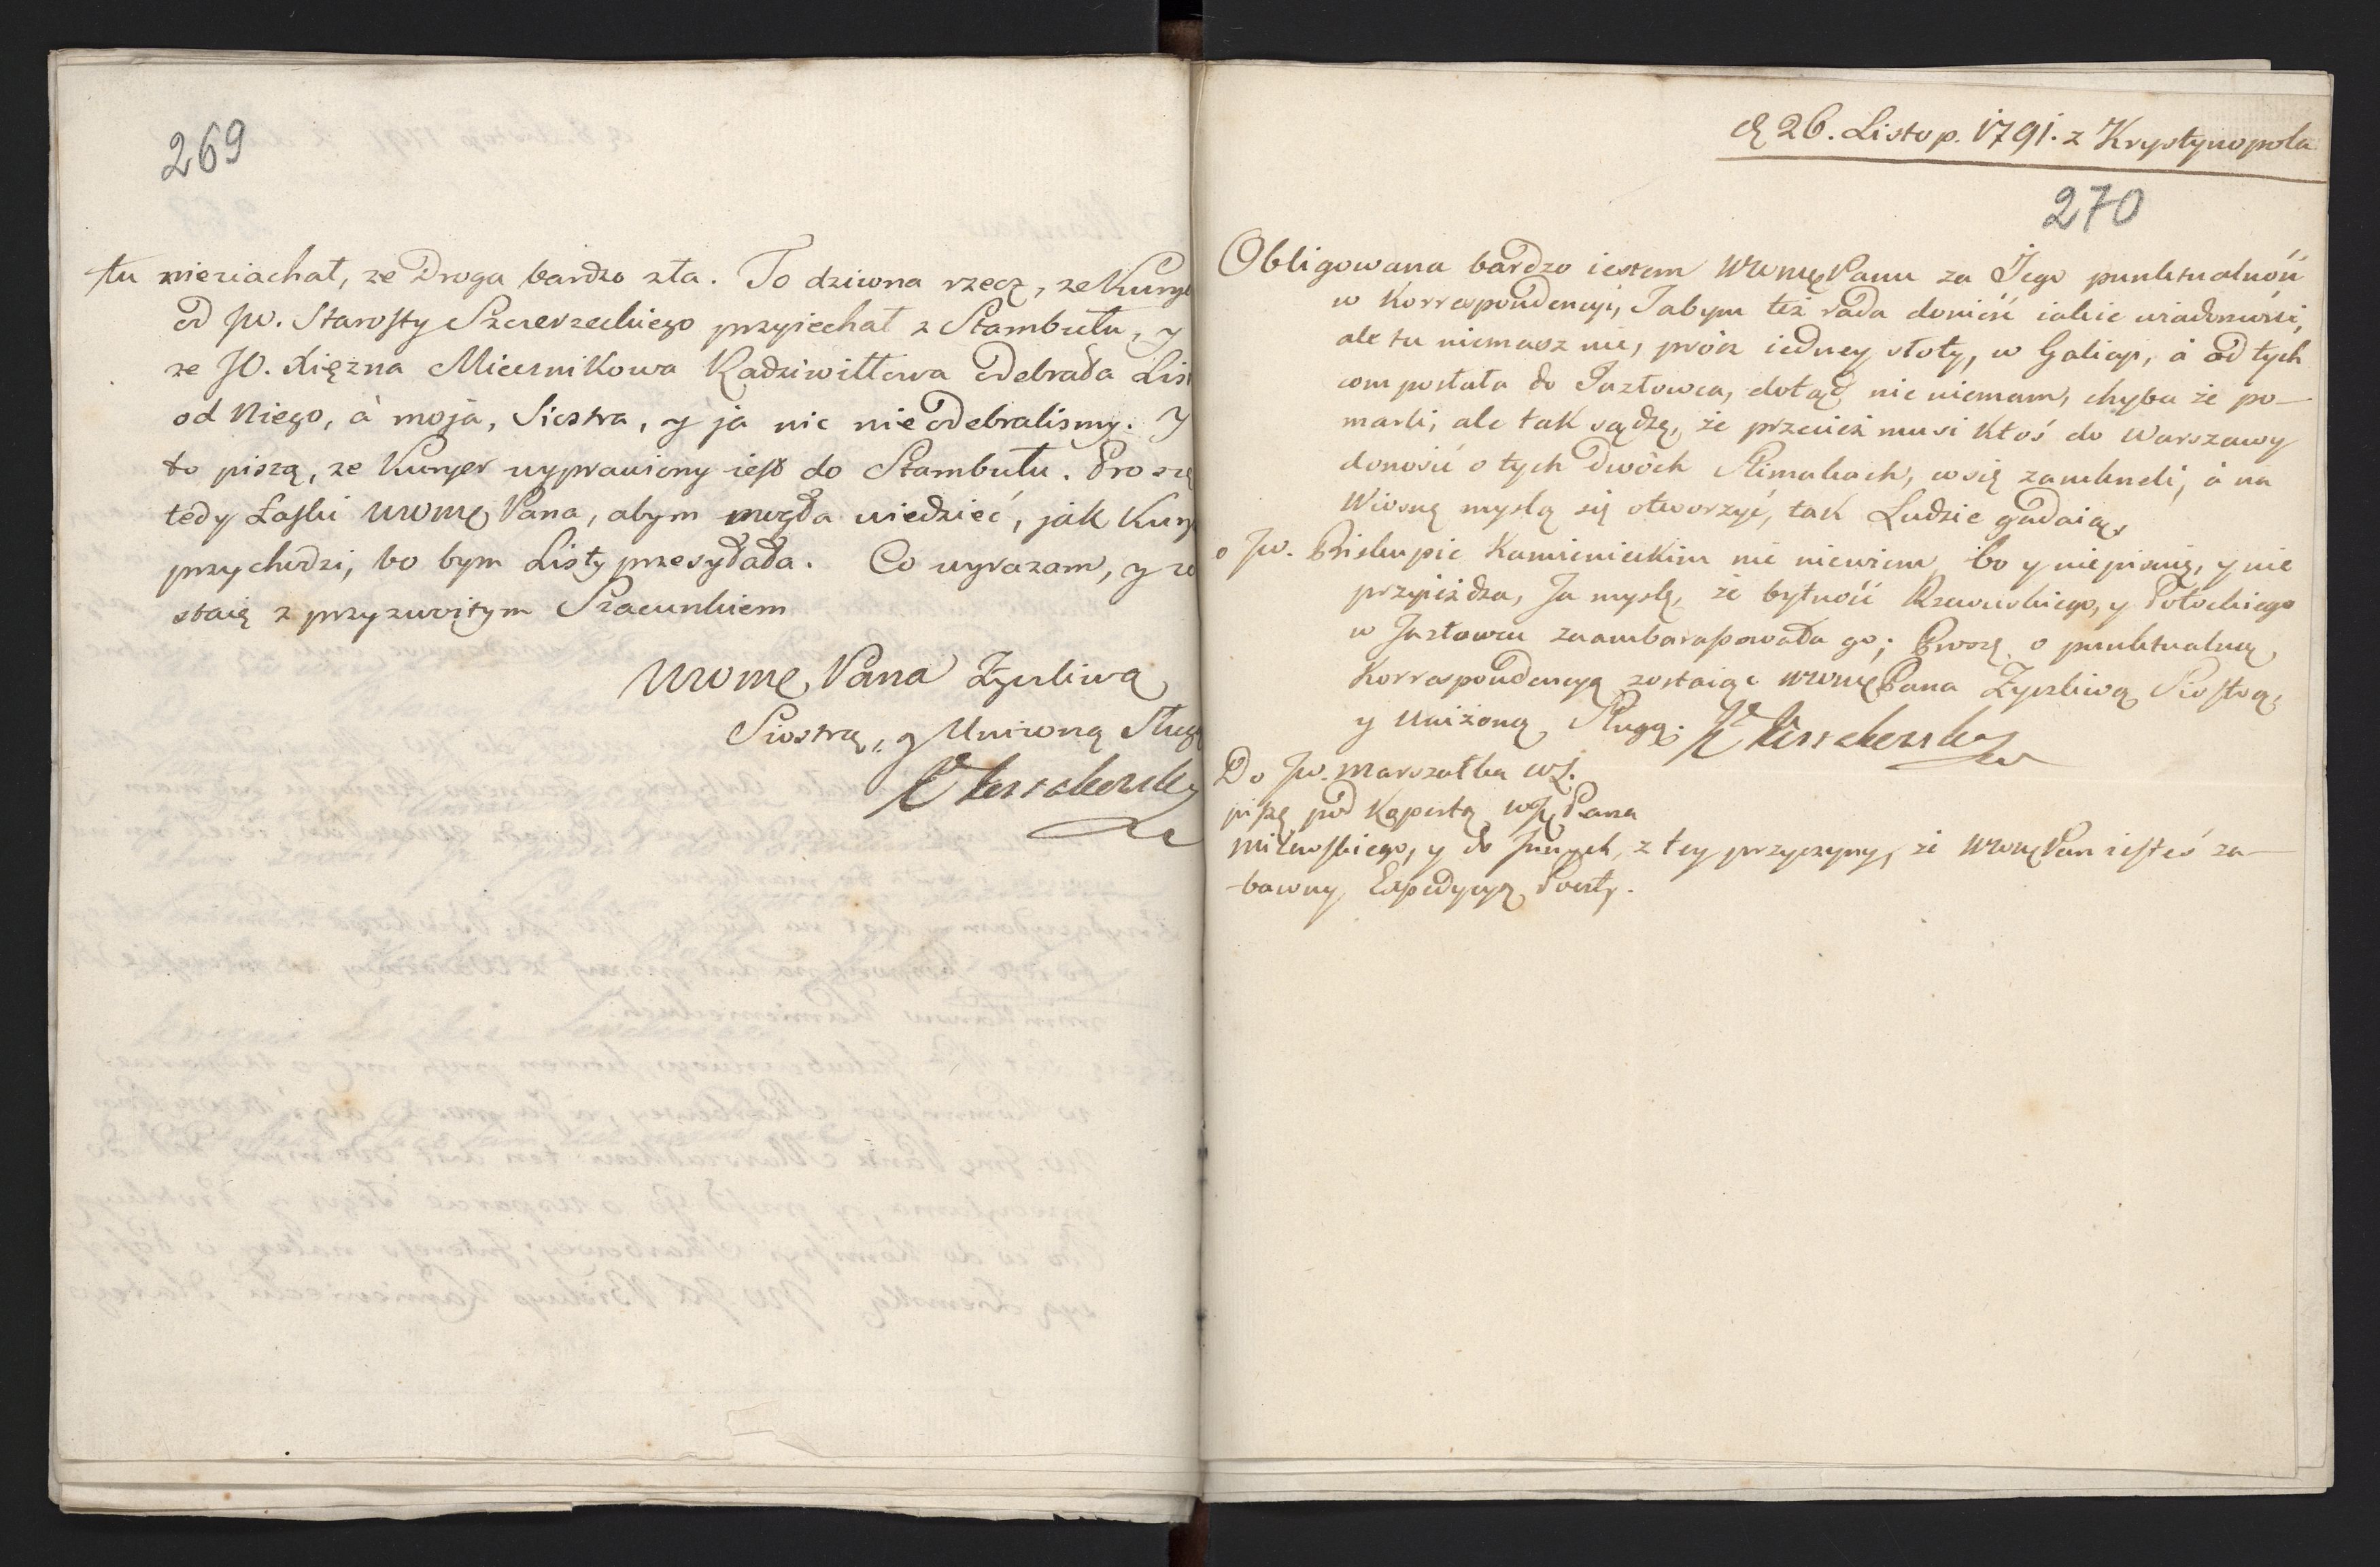 269
tu nieziachał, ze Droga bardzo zła. To dziwna rzecz, ze Kurye
od JW. Starosty Szczerzeckiego przyiechał z Stambułu, y
ze JO. Xiężna Miecznikowa Radziwiłłowa Odebrała Lis
od Niego, à moja, Siostra, y ja nic nie Odebralismy. Y
to piszą, ze Kuryer wyprawiony iest do Stambułu. Proszę
tedy Łaski WWMę Pana, abym mogła wiedzieć, jak Kury
przychodzi, bo bym Listy przesyłała. Co wyrazam, y zo
staię z przyzwoitym Szacunkiem
WWMę Pana Zyczliwą
Siostrą, y Unizoną Sługą
d 26. Listop. 1791. z Krystynopola
270
Obligowana bardzo iestem WWMę Panu za Jego punktualność
w Korrespondencyi, Jabym też rada donieść iakie wiadomości,
ale tu niemasz nic, prócz iedney słoty, w Galicyi, à od tych
com posłała do Jazłowca, dotąd nic niemam, chyba że po-
marli, ale tak sądzę, że przecież musi Ktoś do Warszawy
donosić o tych Dwóch Slimakach, co się zamkneli, à na
Wiosnę myslą się otworzyć, tak Ludzie gadaią,
o JW. Biskupie Kamienieckim nic niewiem, bo y niepiszę, y nie
przyieżdza, Ja myslę, że bytność Rzewuskiego, y Potockiego
w Jazłowcu zaambarasowała go; Proszę o punktualną
Korrespondencyą zostaiąc WWMę Pana Zyczliwą Siostrą,
y Uniżoną Sługą.
Do JW. Marszałka WŁ.
piszę pod Kopertą WJ Pana
Milewskiego, y do Innych, z tey przyczyny, że WWMę Pan iesteś za-
bawny Expedycyą Poczty.